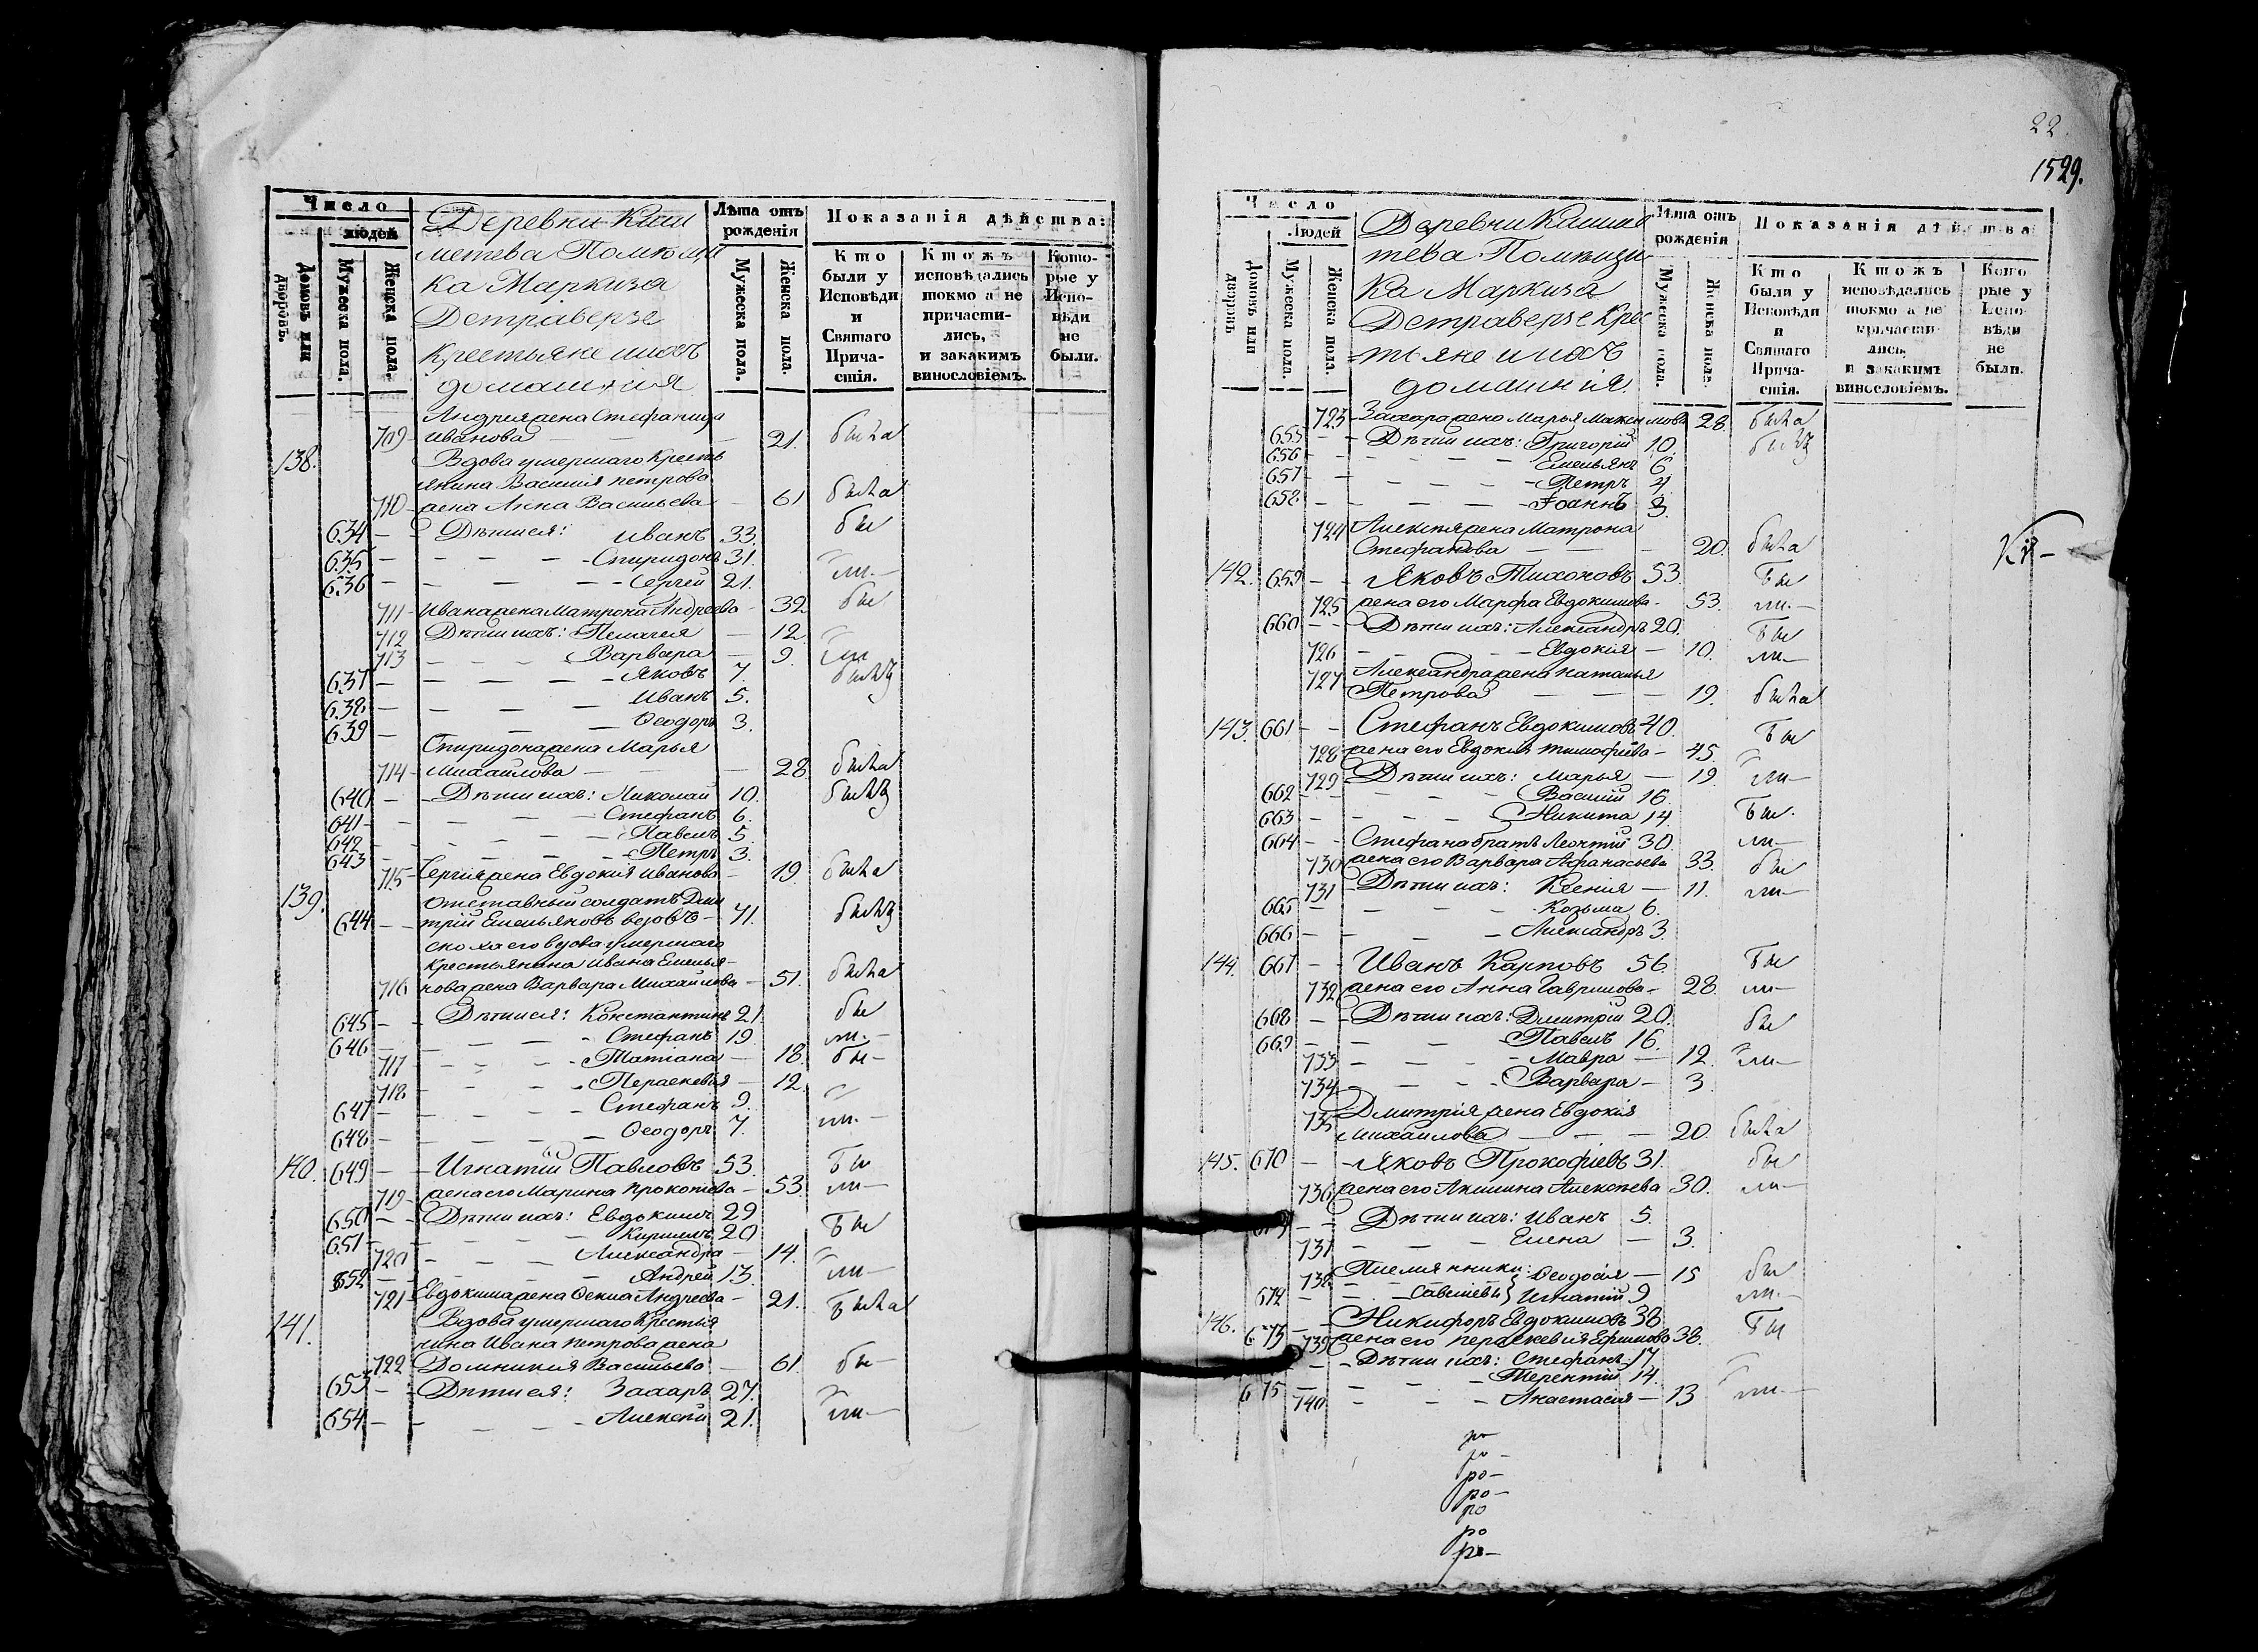 Число
людей
Домовъ или дворовъ.
Мужеска пола.
Женска пола.
Деревни Киш
метева Помѣщи
ка Маркиза
Детраверзе
Крестьяне ихъ
домашнія
Лѣта отъ рожденія
Мужеска пола.
Женска пола.
Показанія дѣйства:
Кто были у Исповѣди и Святаго Причастія.
Ктожъ исповѣдались токмо а не причастились, и закакимъ винословіемъ.
Которые у Исповѣди не были.
Андрея жена Стефанида
709 Иванова 21. была
138. Вдова умершаго кресть
янина Василія петрова
710 жена Анна Васильева 61 была
634 Дѣти ея: Иванъ 33. бы
635 Спиридонъ 31.
636 Сергей 21. ли
711 Ивана жена Матрона Андреева 32 бы
712 Дѣти ихъ: Пелагея 12
713 Варвара 9. ли
637 Яковъ 7. былъ
638 Иванъ 5.
639 Ѳеодоръ 3.
Спиридона жена Марья
714 Михайлова 28 была
640 Дѣти ихъ: Николай 10. былъ
641 Стефанъ 6.
642 Павелъ 5
643 Петръ 3.
715 Сергія жена Евдокия Иванова 19 была
139. Отставный солдатъ Дми
644 трій Емельяновъ вдовъ 71. былъ
сноха его вдова умершаго
крестьянина Ивана Емелья
716 нова жена Варвара Михайлова 51. была
645 Дѣти ея: Константинъ 21. бы
646 Стефанъ 19. ли
717 Татіана 18. бы
718 Параскевія 12.
647 Стефанъ 9.
648 Ѳеодоръ 7. ли
140. 649 Игнатій Павловъ 53. бы
719 жена его Марина Прокопіева 53 ли
650 Дѣти ихъ: Евдокимъ 29
651 Кирилъ 20 бы
720 Александра 14.
652 Андрей 13. ли
721 Евдокима жена Ѳекла Андреева 21. была
141. Вдова умершаго крестья
нина Ивана Петрова жена
722 Домникия Васильева 61. бы
653 Дѣти ея: Захаръ 27.
654 Алексѣй 21. ли
22.
1529.
Число
Людей
Домовъ или дворовъ
Мужеска пола.
Женска пола.
Деревни Кишме
тева Помѣщи
ка Маркиза
Детраверзе Крес
тьяне ихъ
домашнія.
Лѣта отъ рожденія
Мужеска пола.
Женска пола.
Показанія дѣйства
Кто были у Исповѣди и Святаго Причастія.
Ктожъ исповѣдались токмо а не причастились, и закакимъ винословіемъ.
Которые у Исповѣди не были.
723 Захара жена Марья Максимова 28. была
655 Дѣти ихъ: Григорій 10. былъ
656 Емельянъ 6.
657 Петръ 4.
658 Іоаннъ 3.
724 Алексѣя жена Матрона
Стефанова 20. была
142. 659 Яковъ Тихоновъ 53. бы
725 жена его Марфа Евдокимова 53. ли
660 Дѣти ихъ: Александръ 20. бы
726 Евдокия 10. ли
727 Александра жена Наталья
Петрова 19. была
143. 661 Стефанъ Евдокимовъ 40. бы
728 жена его Евдокия Тимофеева 45.
729 Дѣти ихъ: Марья 19. ли
662 Василій 16.
663 Никита 14. бы
664 Стефана братъ Леонтій 30. ли
730 жена его Варвара Афанасьева 33. бы
731 Дѣти ихъ: Ксенія 11. ли
665 Козьма 6.
666 Александръ 3.
144. 667 Иванъ Карповъ 56. бы
732 жена его Анна Гаврилова 28. ли
668 Дѣти ихъ: Дмитрій 20. бы
669 Павелъ 16.
733 Мавра 12. ли
734 Варвара 3
735 Дмитрія жена Евдокія
Михайлова 20. была
145. 670 Яковъ Прокофіевъ 31. бы
736 жена его Акилина Алексѣева 30. ли
Дѣти ихъ: Иванъ 5.
737 Елена 3.
738 Племянники: Ѳеодосія 15 бы
672 Савелевы Игнатій 9 ли
146. 673 Никифоръ Евдокимовъ 38. бы
739 жена его Параскевия Ефимова 38.
Дѣти ихъ: Стефанъ 17
675 Терентій 14.
740 Анастасия 13 ли
ро
ро
ро
ро
ро
ро
ро